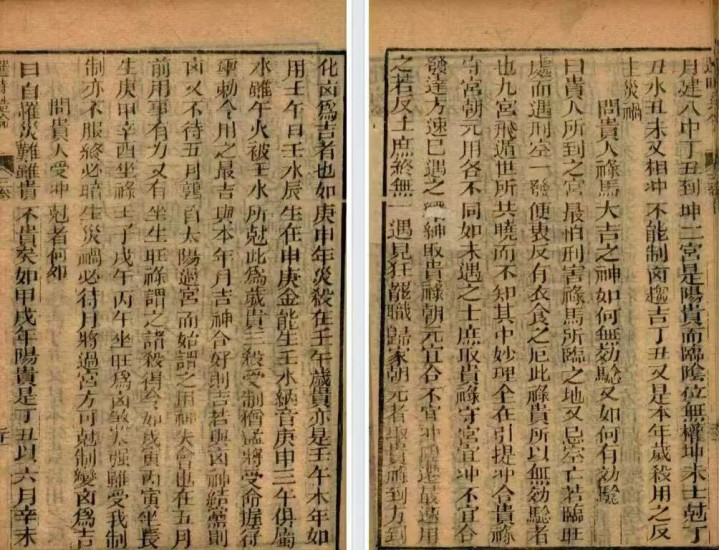 化卤為吉者也如庚申年灸殺在壬午歲貴亦是壬午木年如
用壬午日壬水辰生在申庚金能生壬水納音庚申三午俱屬
水雖午火被壬水所尅此為歲貴三殺受制猶猛將受命握符
專勅令用之最吉與本年月吉神合好則吉若與卤神結黨則
卤又不待五月鶉首太陽過宮而始謂之用神大會也在五月
前用事有力又有坐生旺祿謂之諸殺得令如戊寅丙寅坐長
生庚申辛酉坐祿壬子戊午丙午坐旺為卤殺太强雖受我制
制亦不服終必暗生災禍必待月將過宮方可尅制變卤為吉
問貴人受冲尅者何如
曰自罹災難雖貴不貴矣如甲戌年陽貴是丁丑以六月辛未
月建入中丁丑到坤二宮是陽貴而臨陰位無權坤未土尅丁
丑水丑未又相冲不能制卤趨吉丁丑又是本年歲殺用之反
生災禍
問貴人祿馬大吉之神如何無効驗又如何有効驗
曰貴人所到之宮最怕刑害祿馬所臨之地又忌空亡若臨旺
處而遇刑空一發便衰反有衣食之厄此祿貴所以無効驗者
也九宮飛遁世所共曉而不知其中妙理全在引提冲合貴祿
守宮朝元用各不同如未遇之士庶取貴祿守宮宜冲不宜合
發達方速已遇之縉紳取貴祿朝元宜合不宜冲陞遷最速用
之若反士庶終無一遇見任罷職歸家朝元者取貴祿到方到